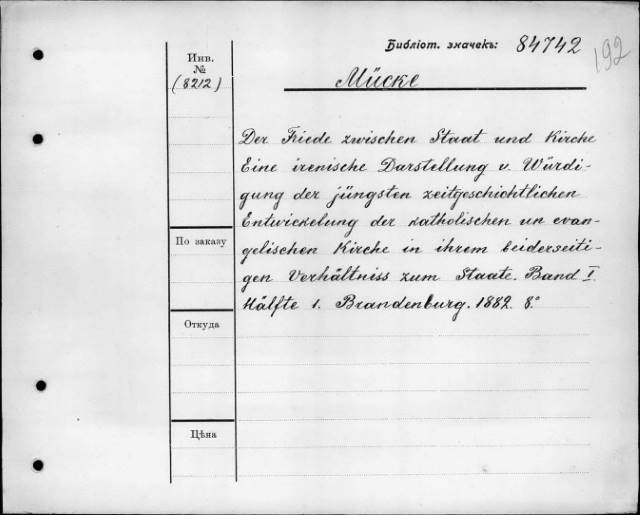 Библіот. значекъ: 84742
192
Инв.
№
(8212)
Mücke
Der Friede zwischen Staat und Kirche
Eine irenische Darstellung v. Würdi-
gung der jüngsten zeitgeschichtlichen
Entwickelung der katholischen un evan-
gelischen Kirche in ihrem beiderseiti-
gen Verhältniss zum Staate. Band I.
Hälfte 1. Brandenburg. 1882. 8.°
По заказу
Откуда
Цѣна